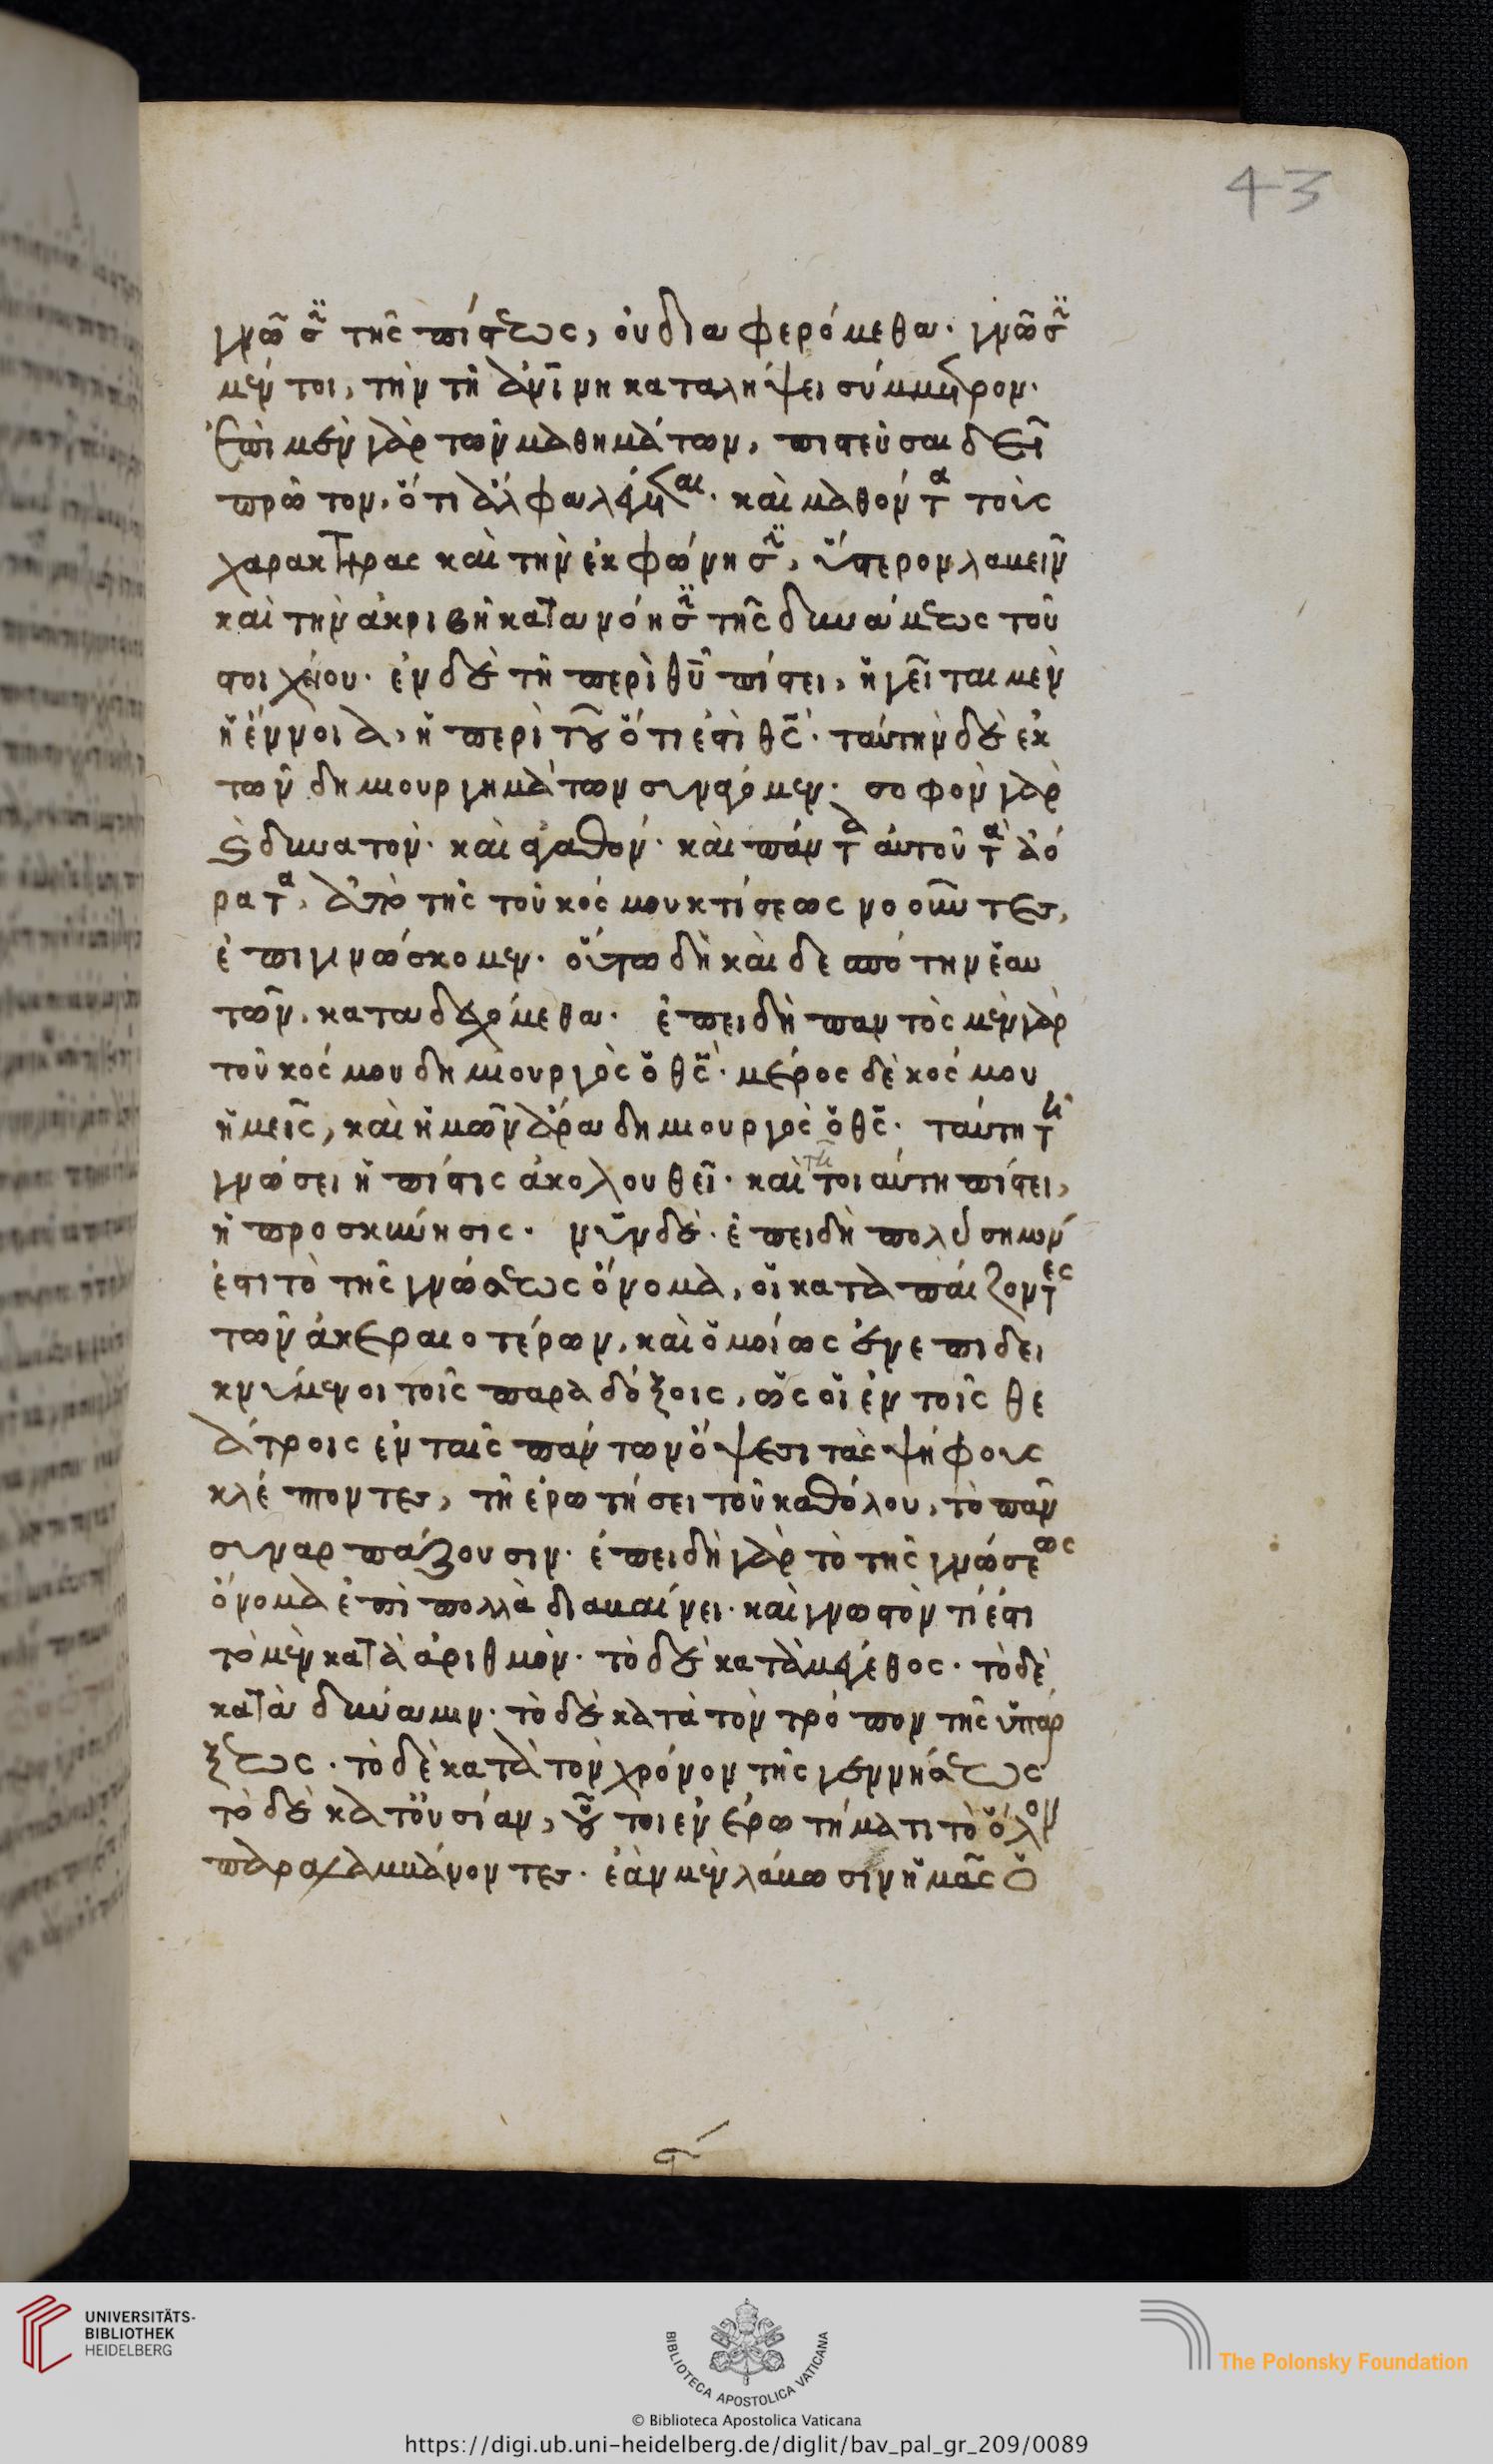 43
γνῶσιν τῆς πίστεως, οὐ διαφερόμεθα· γνῶσιν
μέντοι, τὴν τῇ ἀνίνῃ καταλήψει σύμμετρον·
Ἐπὶ μὲν γὰρ τῶν μαθημάτων, πιστεῦσαι δεῖ
πρῶτον, ὅτι ἄλφα λέγεται· καὶ μαθόντα τοὺς
χαρακτῆρας καὶ τὴν ἐκφώνησιν, ὕστερον λαβεῖν
καὶ τὴν ἀκριβῆ κατανόησιν τῆς δυνάμεως τοῦ
στοιχείου· ἐν δὲ τῇ περὶ θῦ πίστει, ἡγεῖται μὲν
ἡ ἔννοια, ἡ περὶ τοῦ ὅτι ἐστὶ θς· ταύτην δὲ ἐκ
τῶν δημιουργημάτων συνάγομεν· σοφὸν γὰρ
καὶ δυνατὸν· καὶ ἀγαθόν· καὶ πάντα αὐτοῦ τὰ ἀό
ρατα, ἀπὸ τῆς τοῦ κόσμου κτίσεως νοοῦντες,
ἐπιγινώσκομεν· οὕτω δὴ καὶ δεσπότην ἑαυ
τῶν, καταδεχόμεθα· ἐπειδὴ παντὸς μὲν γὰρ
τοῦ κόσμου δημιουργὸς ὁ θς· μέρος δὲ κόσμου
ἡμεῖς, καὶ ἡμῶν ἄρα δημιουργὸς ὁ θς· ταύτῃ τῇ
γνώσει ἡ πίστις ἀκολουθεῖ· καὶ τῇ τοιαύτῃ πίστει,
ἡ προσκύνησις· νῦν δὲ· ἐπειδὴ πολύσημόν
ἐστι τὸ τῆς γνώσεως ὄνομα, οἱ καταπαίζοντες
τῶν ἀκεραιοτέρων, καὶ ὁμοίως ἐνεπιδει
κνύμενοι τοῖς παραδόξοις, ὡς οἱ ἐν τοῖς θε
άτροις ἐν ταῖς πάντων ὄψεσι τὰς ψήφους
κλέπτοντες, τῇ ἐρωτήσει τοῦ καθόλου, τὸ πᾶν
συναρπάζουσιν· ἐπειδὴ γὰρ τὸ τῆς γνώσεως
ὄνομα ἐπὶ πολλὰ διαβαίνει· καὶ γνωστὸν τί ἐστι
τὸ μὲν κατὰ ἀριθμὸν· τὸ δὲ κατὰ μέγεθος· τὸ δὲ
κατὰ δύναμιν· τὸ δὲ κατὰ τὸν τρόπον τῆς ὑπάρ
ξεως· τὸ δὲ κατὰ τὸν χρόνον τῆς γεννήσεως
τὸ δὲ κατοὐσίαν, οὗτοι ἐν ἐρωτήματι τὸ ὅλον
παραλαμβάνοντες· ἐὰν μὲν λάβωσιν ἡμᾶς ὁ
ϛ´
UNIVERSITÄTS-
BIBLIOTHEK
HEIDELBERG
BIBLIOTECA APOSTOLICA VATICANA
The Polonsky Foundation
© Biblioteca Apostolica Vaticana
https://digi.ub.uni-heidelberg.de/diglit/bav_pal_gr_209/0089